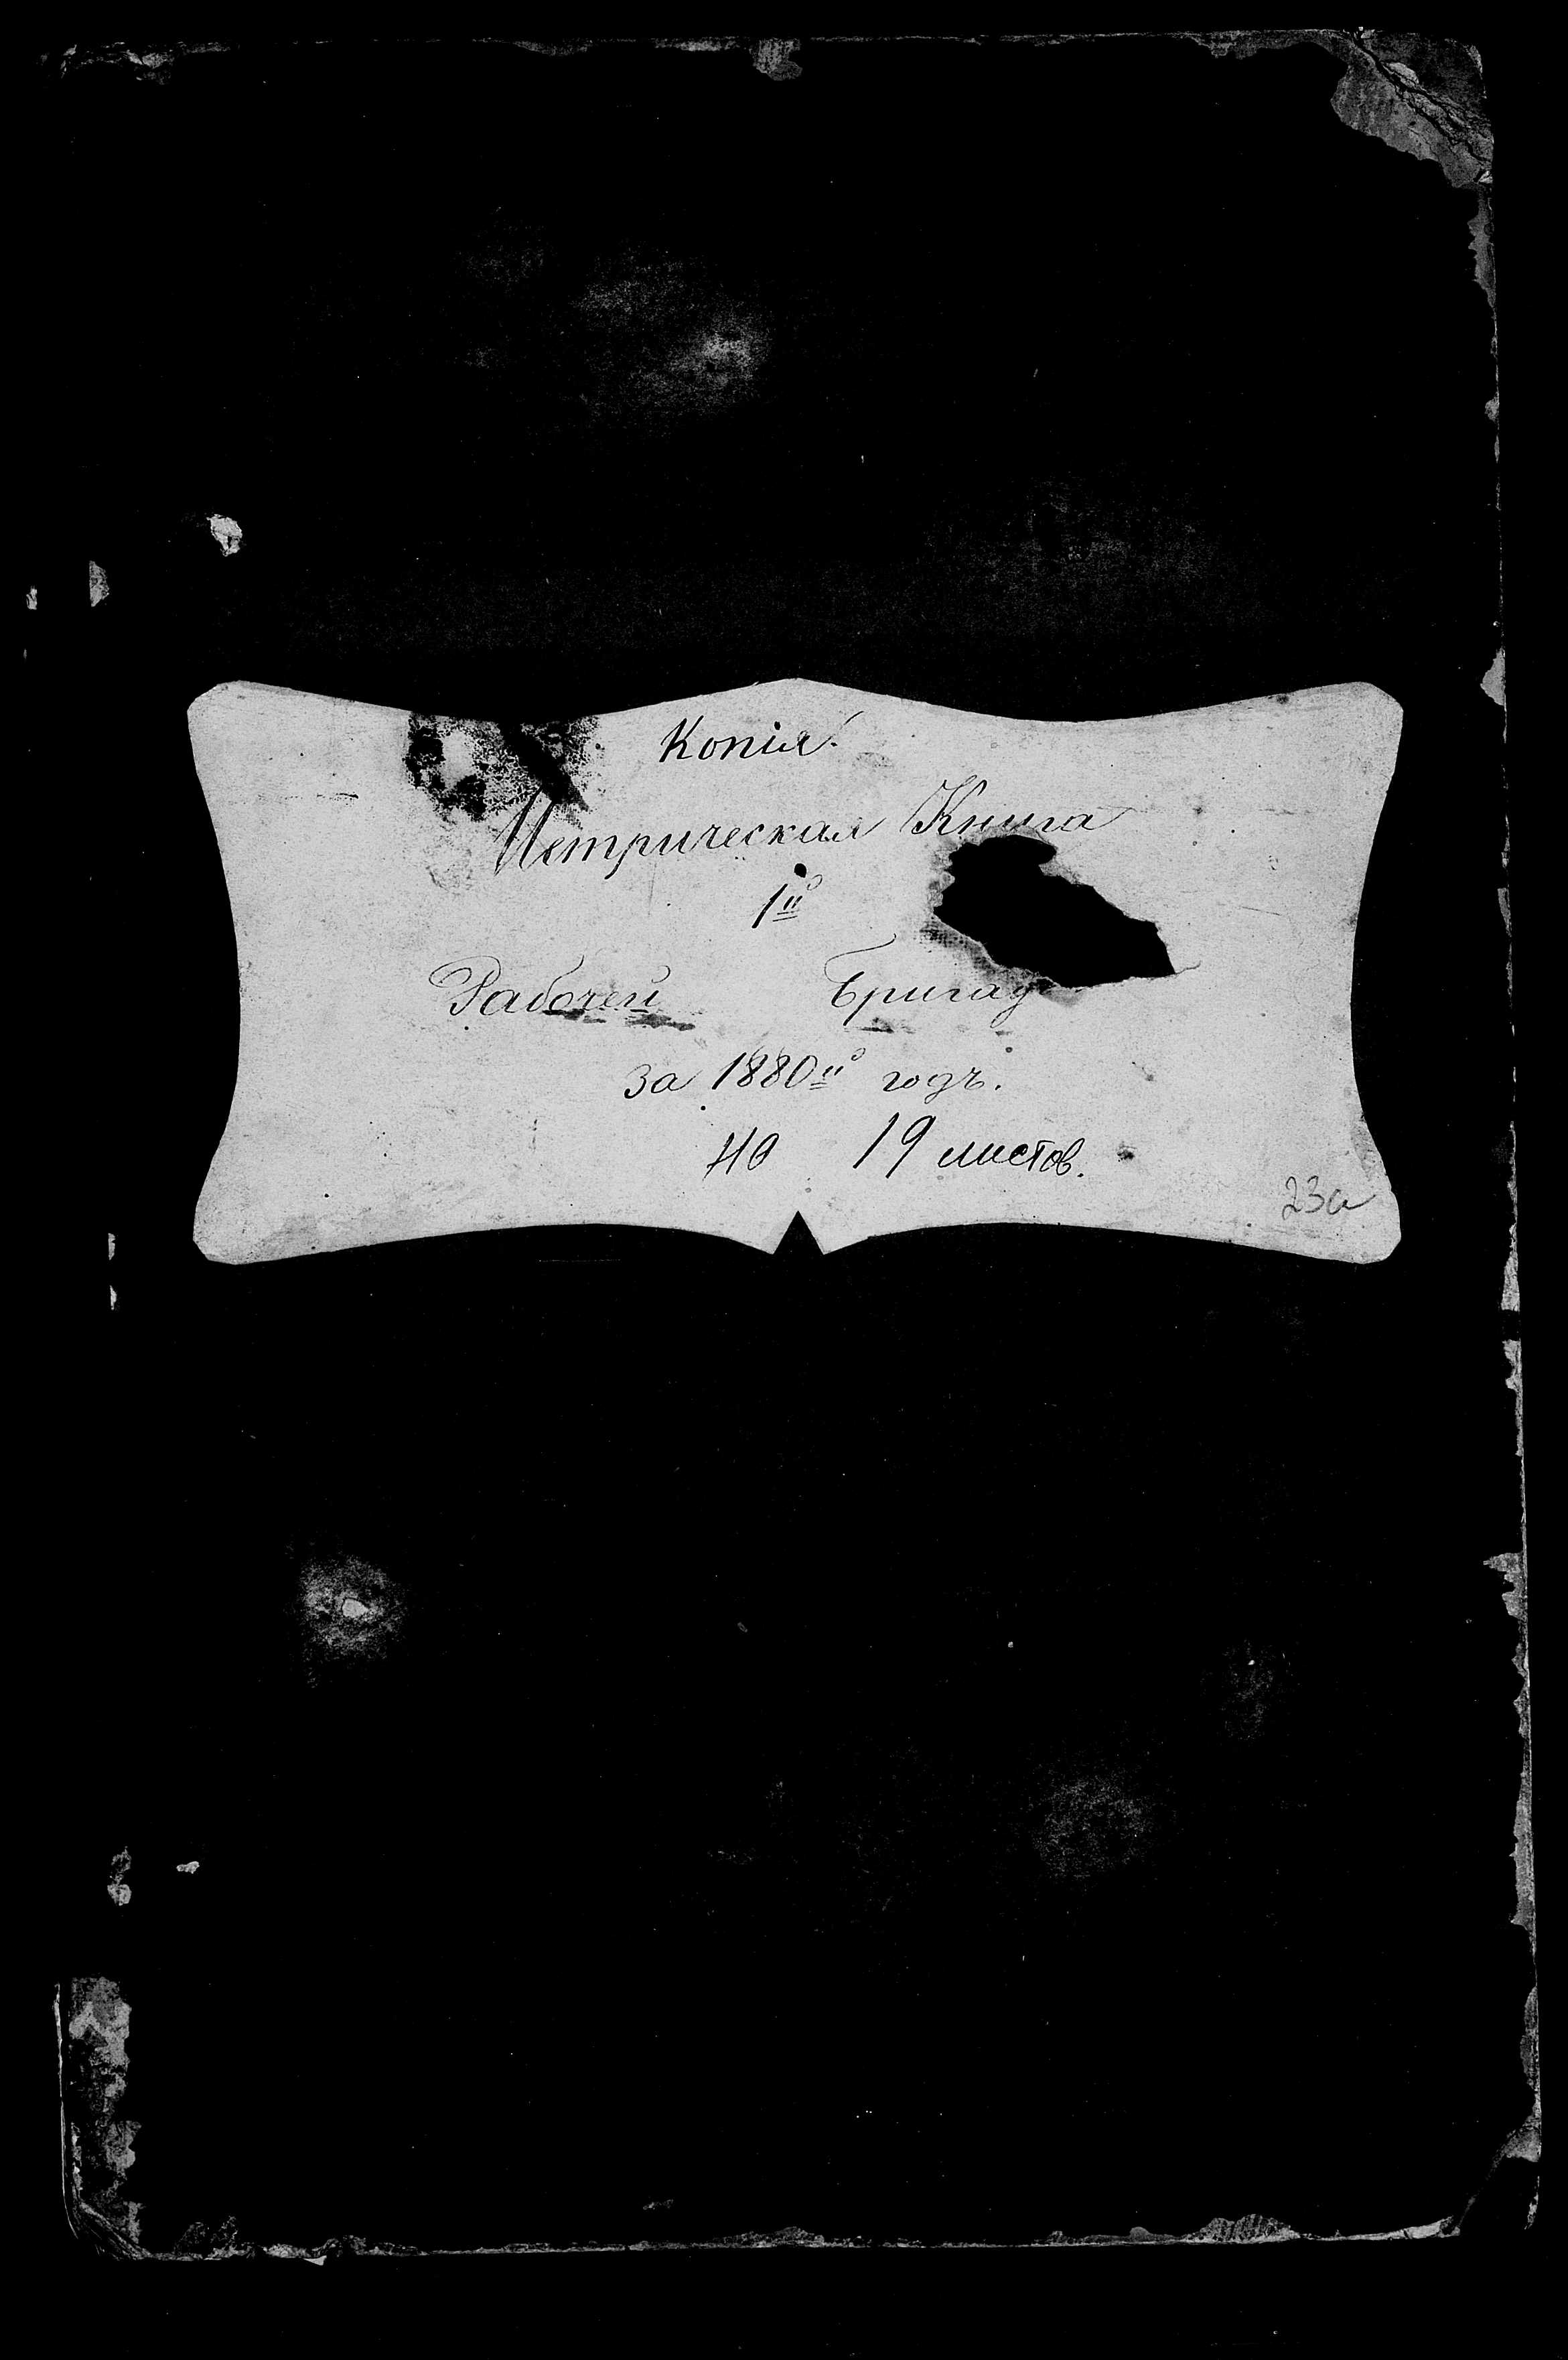 Копія.
Метрическая Книга
1й
Рабочей Бригад
за 1880й годъ.
19 листов.
23а